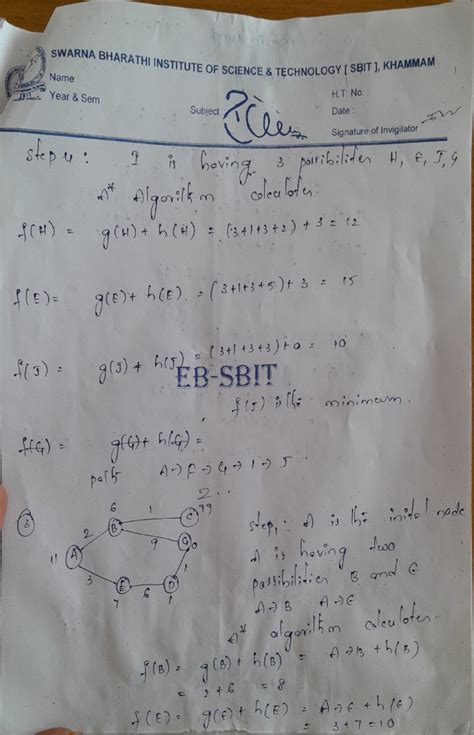 SWARNA BHARATHI INSTITUTE OF SCIENCE & TECHNOLOGY [ SBIT ], KHAMMAM
Name
H.T. No. :
Year & Sem
Subject
Date :
Signature of Invigilator
Step 4: I is having 3 possibilities H, E, J, G
A* Algorithm calculates.
f(H) = g(H) + h(H) = (3+1+3+2) + 3 = 12
f(E) = g(E) + h(E) = (3+1+3+5) + 3 = 15
f(J) = g(J) + h(J) = (3+1+3+3) + 0 = 10
EB-SBIT
f(J) is the minimum.
f(G) = g(G) + h(G) =
path A→F→G→I→J
2..
3
6 1 C 99
2 B
A 9 G 0
11
3 1
E 6 D
7 1
step1: A is the inital node
A is having two
possibilities B and E
A→B A→E
A* algorithm calculates.
f(B) = g(B) + h(B) = A→B + h(B)
= 3+6 = 8
f(E) = g(E) + h(E) = A→E + h(E)
= 3+7=10